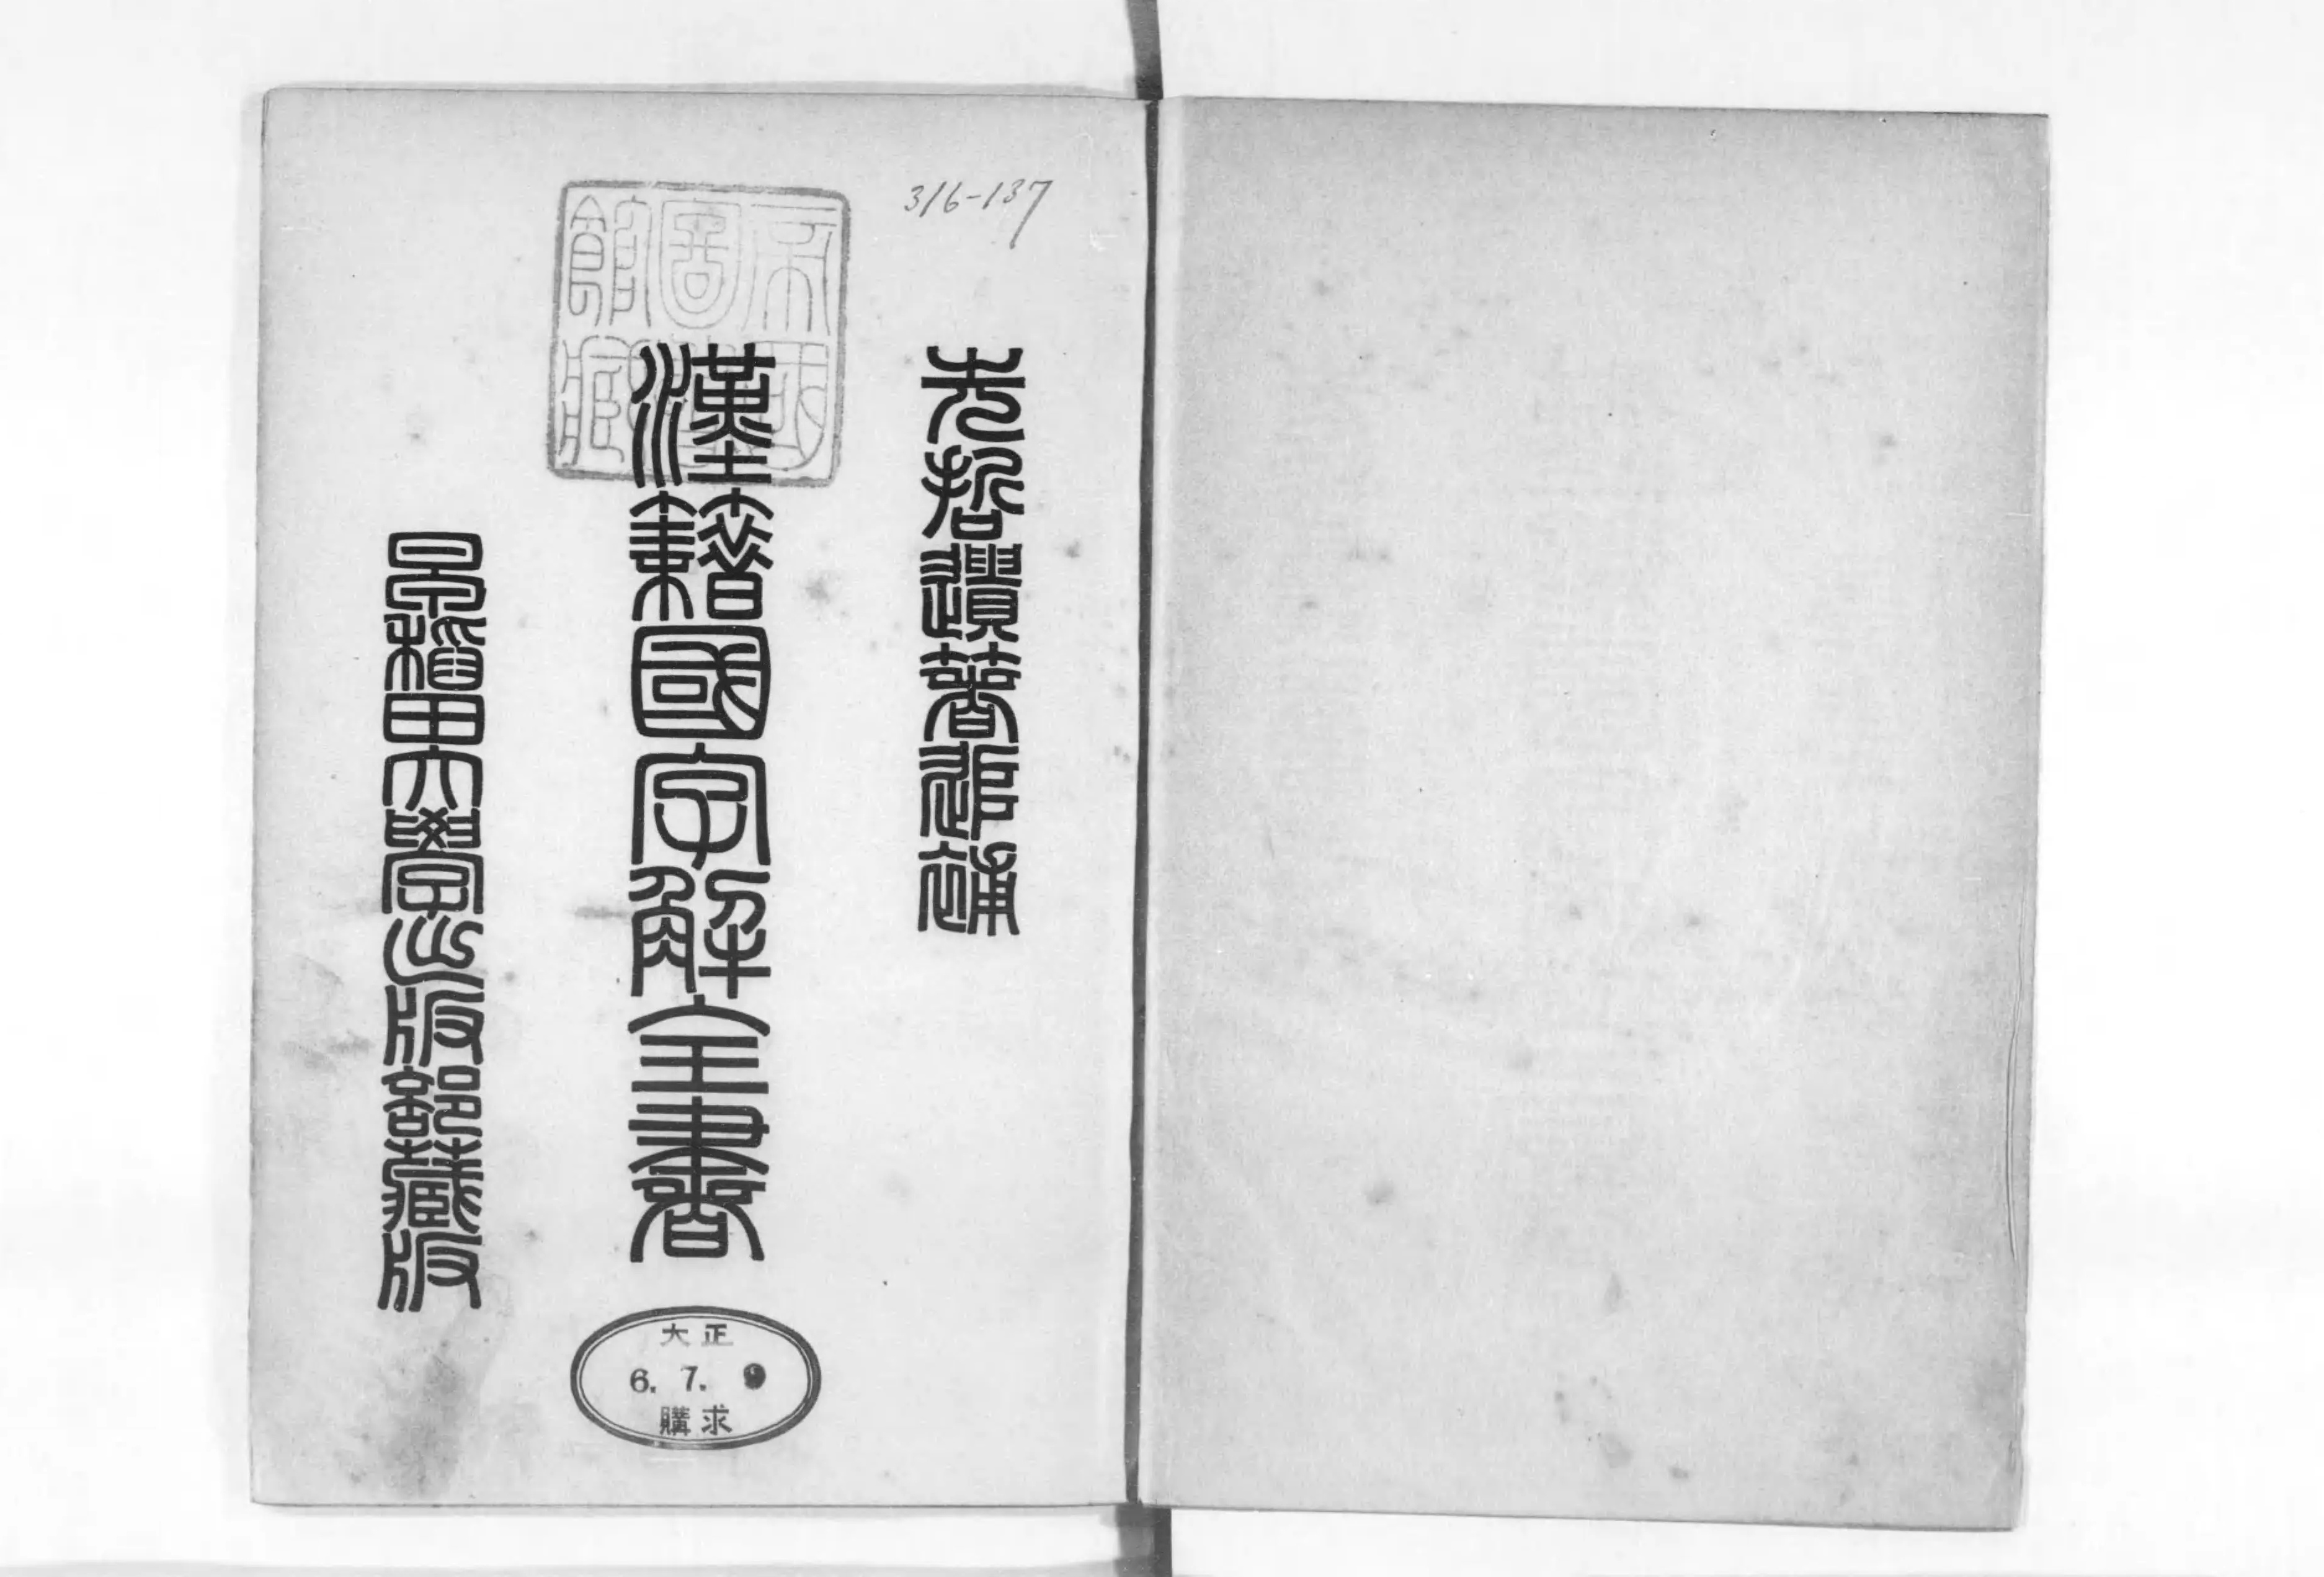 316-137
先哲遺著追補
漢籍國字解全書
早稻田大學出版部藏版
帝國
圖書
館藏
大正
6. 7. 9
購求